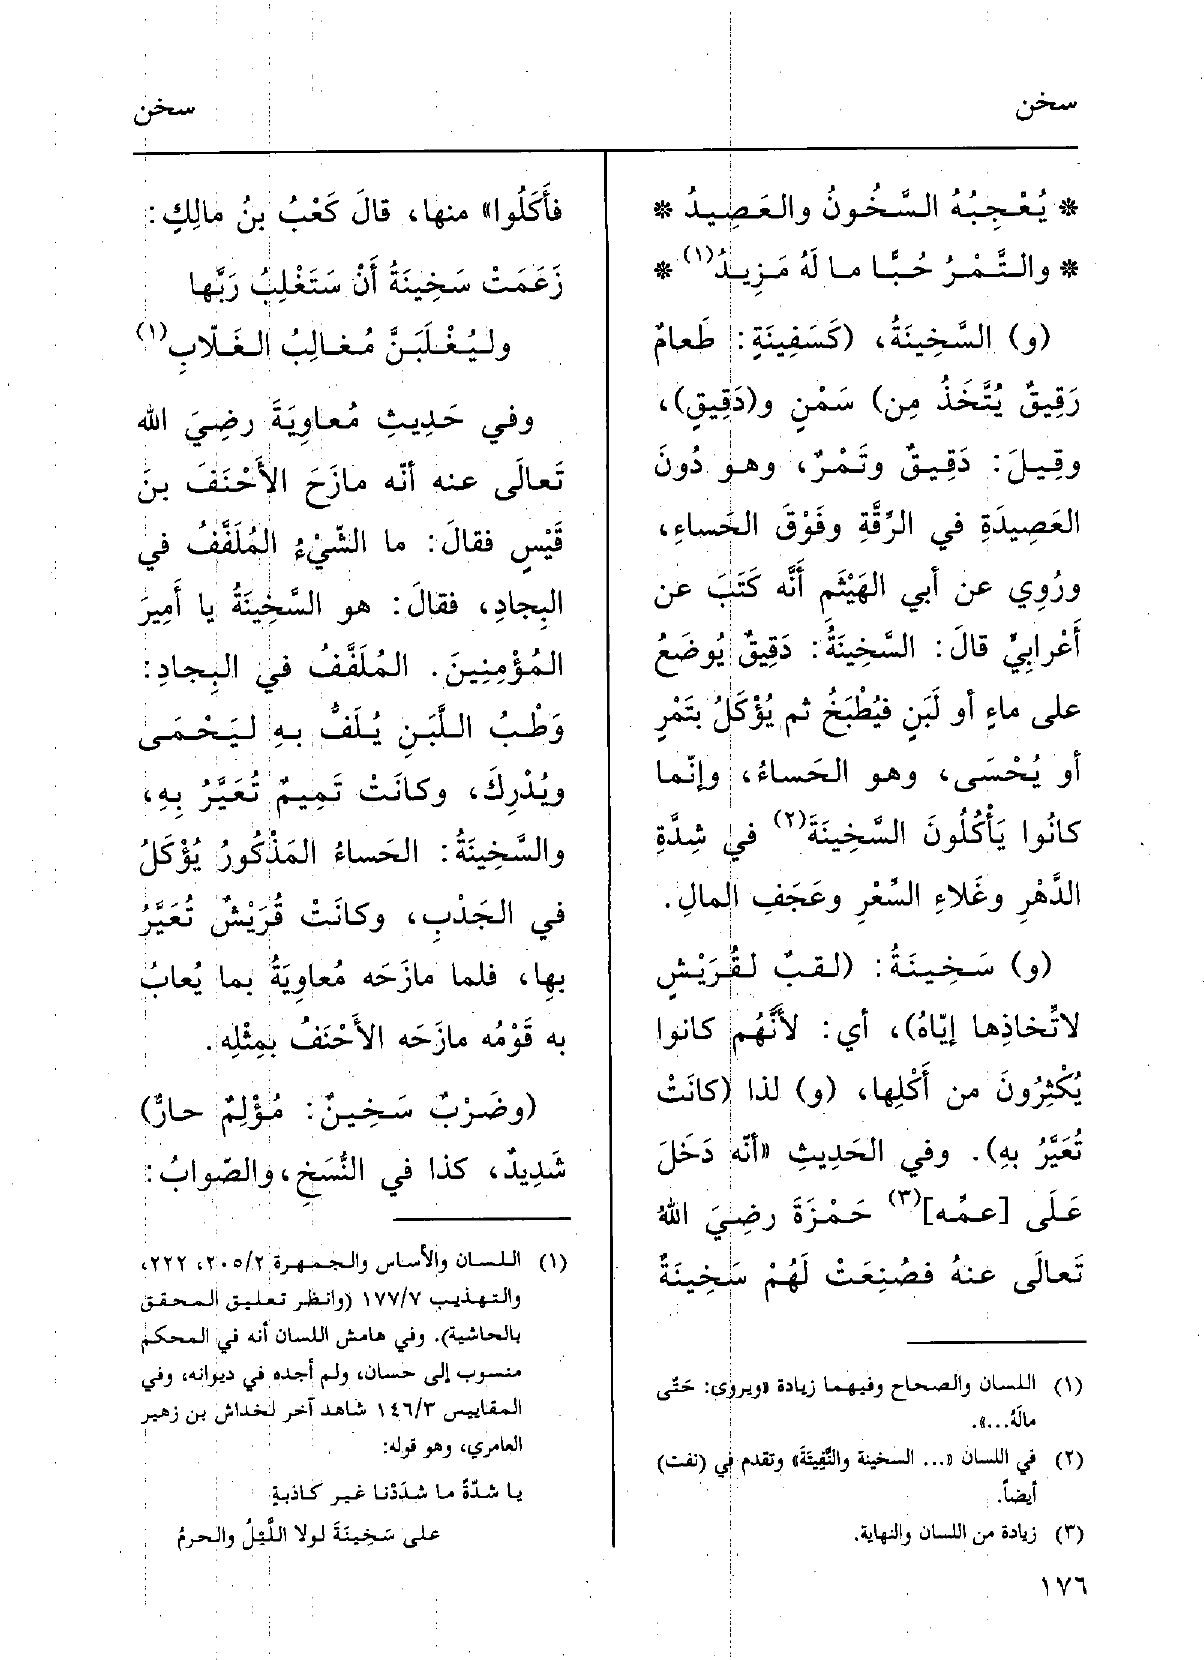 سخن
سخن
* يُعْجِبُهُ السَّخُونُ والعَصِيدُ *
* والتَّمْرُ حُبًّا ما لَهُ مَزِيدُ(١) *
(و) السَّخِينَةُ، (كَسَفِينَةٍ: طَعامٌ
رَقِيقٌ يُتَّخَذُ مِن) سَمْنٍ و(دَقِيقٍ)،
وقِيلَ: دَقِيقٌ وتَمْرٌ، وهو دُونَ
العَصِيدَةِ في الرِّقَّةِ وفَوْقَ الحَساءِ،
ورُوِي عن أبي الهَيْثَمِ أَنَّه كَتَبَ عن
أَعْرابِيٍّ قالَ: السَّخِينَةُ: دَقِيقٌ يُوضَعُ
على ماءٍ أو لَبَنٍ فيُطْبَخُ ثم يُؤْكَلُ بتَمْرٍ
أو يُحْسَى، وهو الحَساءُ، وإنّما
كانُوا يَأْكُلُونَ السَّخِينَةَ(٢) في شِدَّةِ
الدَّهْرِ وغَلاءِ السِّعْرِ وعَجَفِ المالِ.
(و) سَخِينَةُ: (لقبٌ لقُرَيْشٍ
لاتِّخاذِها إيّاهُ)، أي: لأَنَّهُم كانوا
يُكْثِرُونَ من أَكْلِها، (و) لذا (كانَتْ
تُعَيَّرُ بهِ). وفي الحَدِيثِ «أنّه دَخَلَ
عَلَى [عمِّه](٣) حَمْزَةَ رضِيَ اللهُ
تَعالَى عنهُ فصُنِعَتْ لَهُمْ سَخِينَةٌ
(١) اللسان والصحاح وفيهما زيادة «ويروى: حَتَّى
مالَهُ...».
(٢) في اللسان «... السخينة والنَّفِيتَةَ» وتقدم في (نفت)
أيضاً.
(٣) زيادة من اللسان والنهاية.
١٧٦
فأَكَلُوا» منها، قالَ كَعْبُ بنُ مالِكٍ:
زَعَمَتْ سَخِينَةُ أَنْ سَتَغْلِبُ رَبَّها
وليُغْلَبَنَّ مُغالِبُ الغَلّابِ(١)
وفي حَدِيثِ مُعاوِيَةَ رضِيَ الله
تَعالَى عنه أنّه مازَحَ الأَحْنَفَ بنَ
قَيْسٍ فقالَ: ما الشَّيْءُ المُلَفَّفُ في
البِجادِ، فقالَ: هو السَّخِينَةُ يا أَمِيرَ
المُؤْمِنِينَ. المُلَفَّفُ في البِجادِ:
وَطْبُ اللَّبَنِ يُلَفُّ بهِ ليَحْمَى
ويُدْرِكَ، وكانَتْ تَمِيمٌ تُعَيَّرُ بِهِ،
والسَّخِينَةُ: الحَساءُ المَذْكُورُ يُؤْكَلُ
في الجَدْبِ، وكانَتْ قُرَيْشٌ تُعَيَّرُ
بها، فلما مازَحَه مُعاوِيَةُ بما يُعابُ
به قَوْمُه مازَحَه الأَحْنَفُ بمِثْلِه.
(وضَرْبٌ سَخِينٌ: مُؤْلِمٌ حارٌّ)
شَدِيدٌ، كذا في النُّسَخِ، والصّوابُ:
(١) اللسان والأساس والجمهرة ٢٠٥/٢، ٢٢٢،
والتهذيب ١٧٧/٧ (وانظر تعليق المحقق
بالحاشية). وفي هامش اللسان أنه في المحكم
منسوب إلى حسان، ولم أجده في ديوانه، وفي
المقاييس ١٤٦/٣ شاهد آخر لخداش بن زهير
العامري، وهو قوله:
يا شدّةً ما شدَدْنا غير كاذبةٍ
على سَخِينَةَ لولا اللَّيْلُ والحرمُ